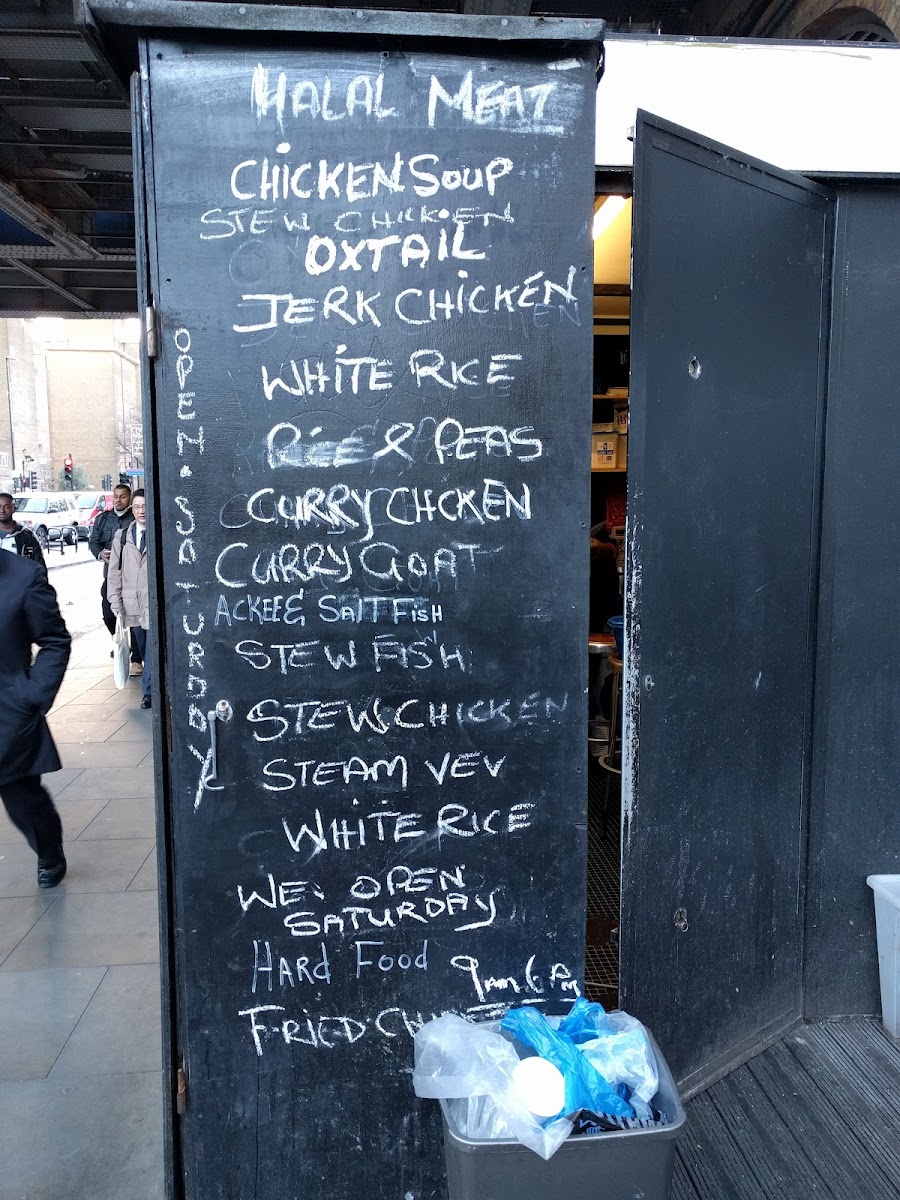 HALAL MEAT
CHICKEN SOUP
STEW CHICKEN
OXTAIL
JERK CHICKEN
WHITE RICE
RICE & PEAS
CURRY CHICKEN
CURRY GOAT
ACKEE & SALT FISH
STEW FISH
STEW CHICKEN
STEAM VEV
WHITE RICE
WE OPEN
SATURDAY
HARD FOOD
9AM 6 PM
FRIED
OPEN SATURDAY